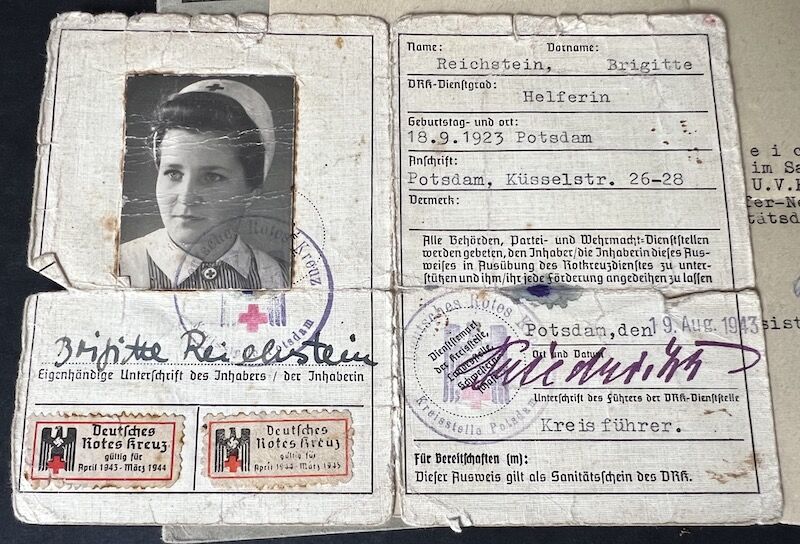 Brigitte Reichstein
Eigenhändige Unterschrift des Inhabers / der Inhaberin
Deutsches
Rotes Kreuz
gültig für
April 1943 - März 1944
Deutsches
Rotes Kreuz
gültig für
April 1944 - März 1945
Rotes Kreuz
Potsdam
Name: Vorname:
Reichstein, Brigitte
DRK-Dienstgrad:
Helferin
Geburtstag- und ort:
18.9.1923 Potsdam
Anschrift:
Potsdam, Küsselstr. 26-28
Vermerk:
Alle Behörden, Partei- und Wehrmacht-Dienststellen
werden gebeten, den Inhaber/die Inhaberin dieses Aus-
weises in Ausübung des Rotkreuzdienstes zu unter-
stützen und ihm/ihr jede Förderung angedeihen zu lassen
Deutsches Rotes
Kreisstelle Potsdam
Dienstempel
der Kreisstelle,
Potsdam, den 19. Aug. 1943
Ort und Datum
Unterschrift des Führers der DRK-Dienststelle
Kreisführer.
Für Bereitschaften (m):
Dieser Ausweis gilt als Sanitätsschein des DRK.
im Sa
U.V.
sist